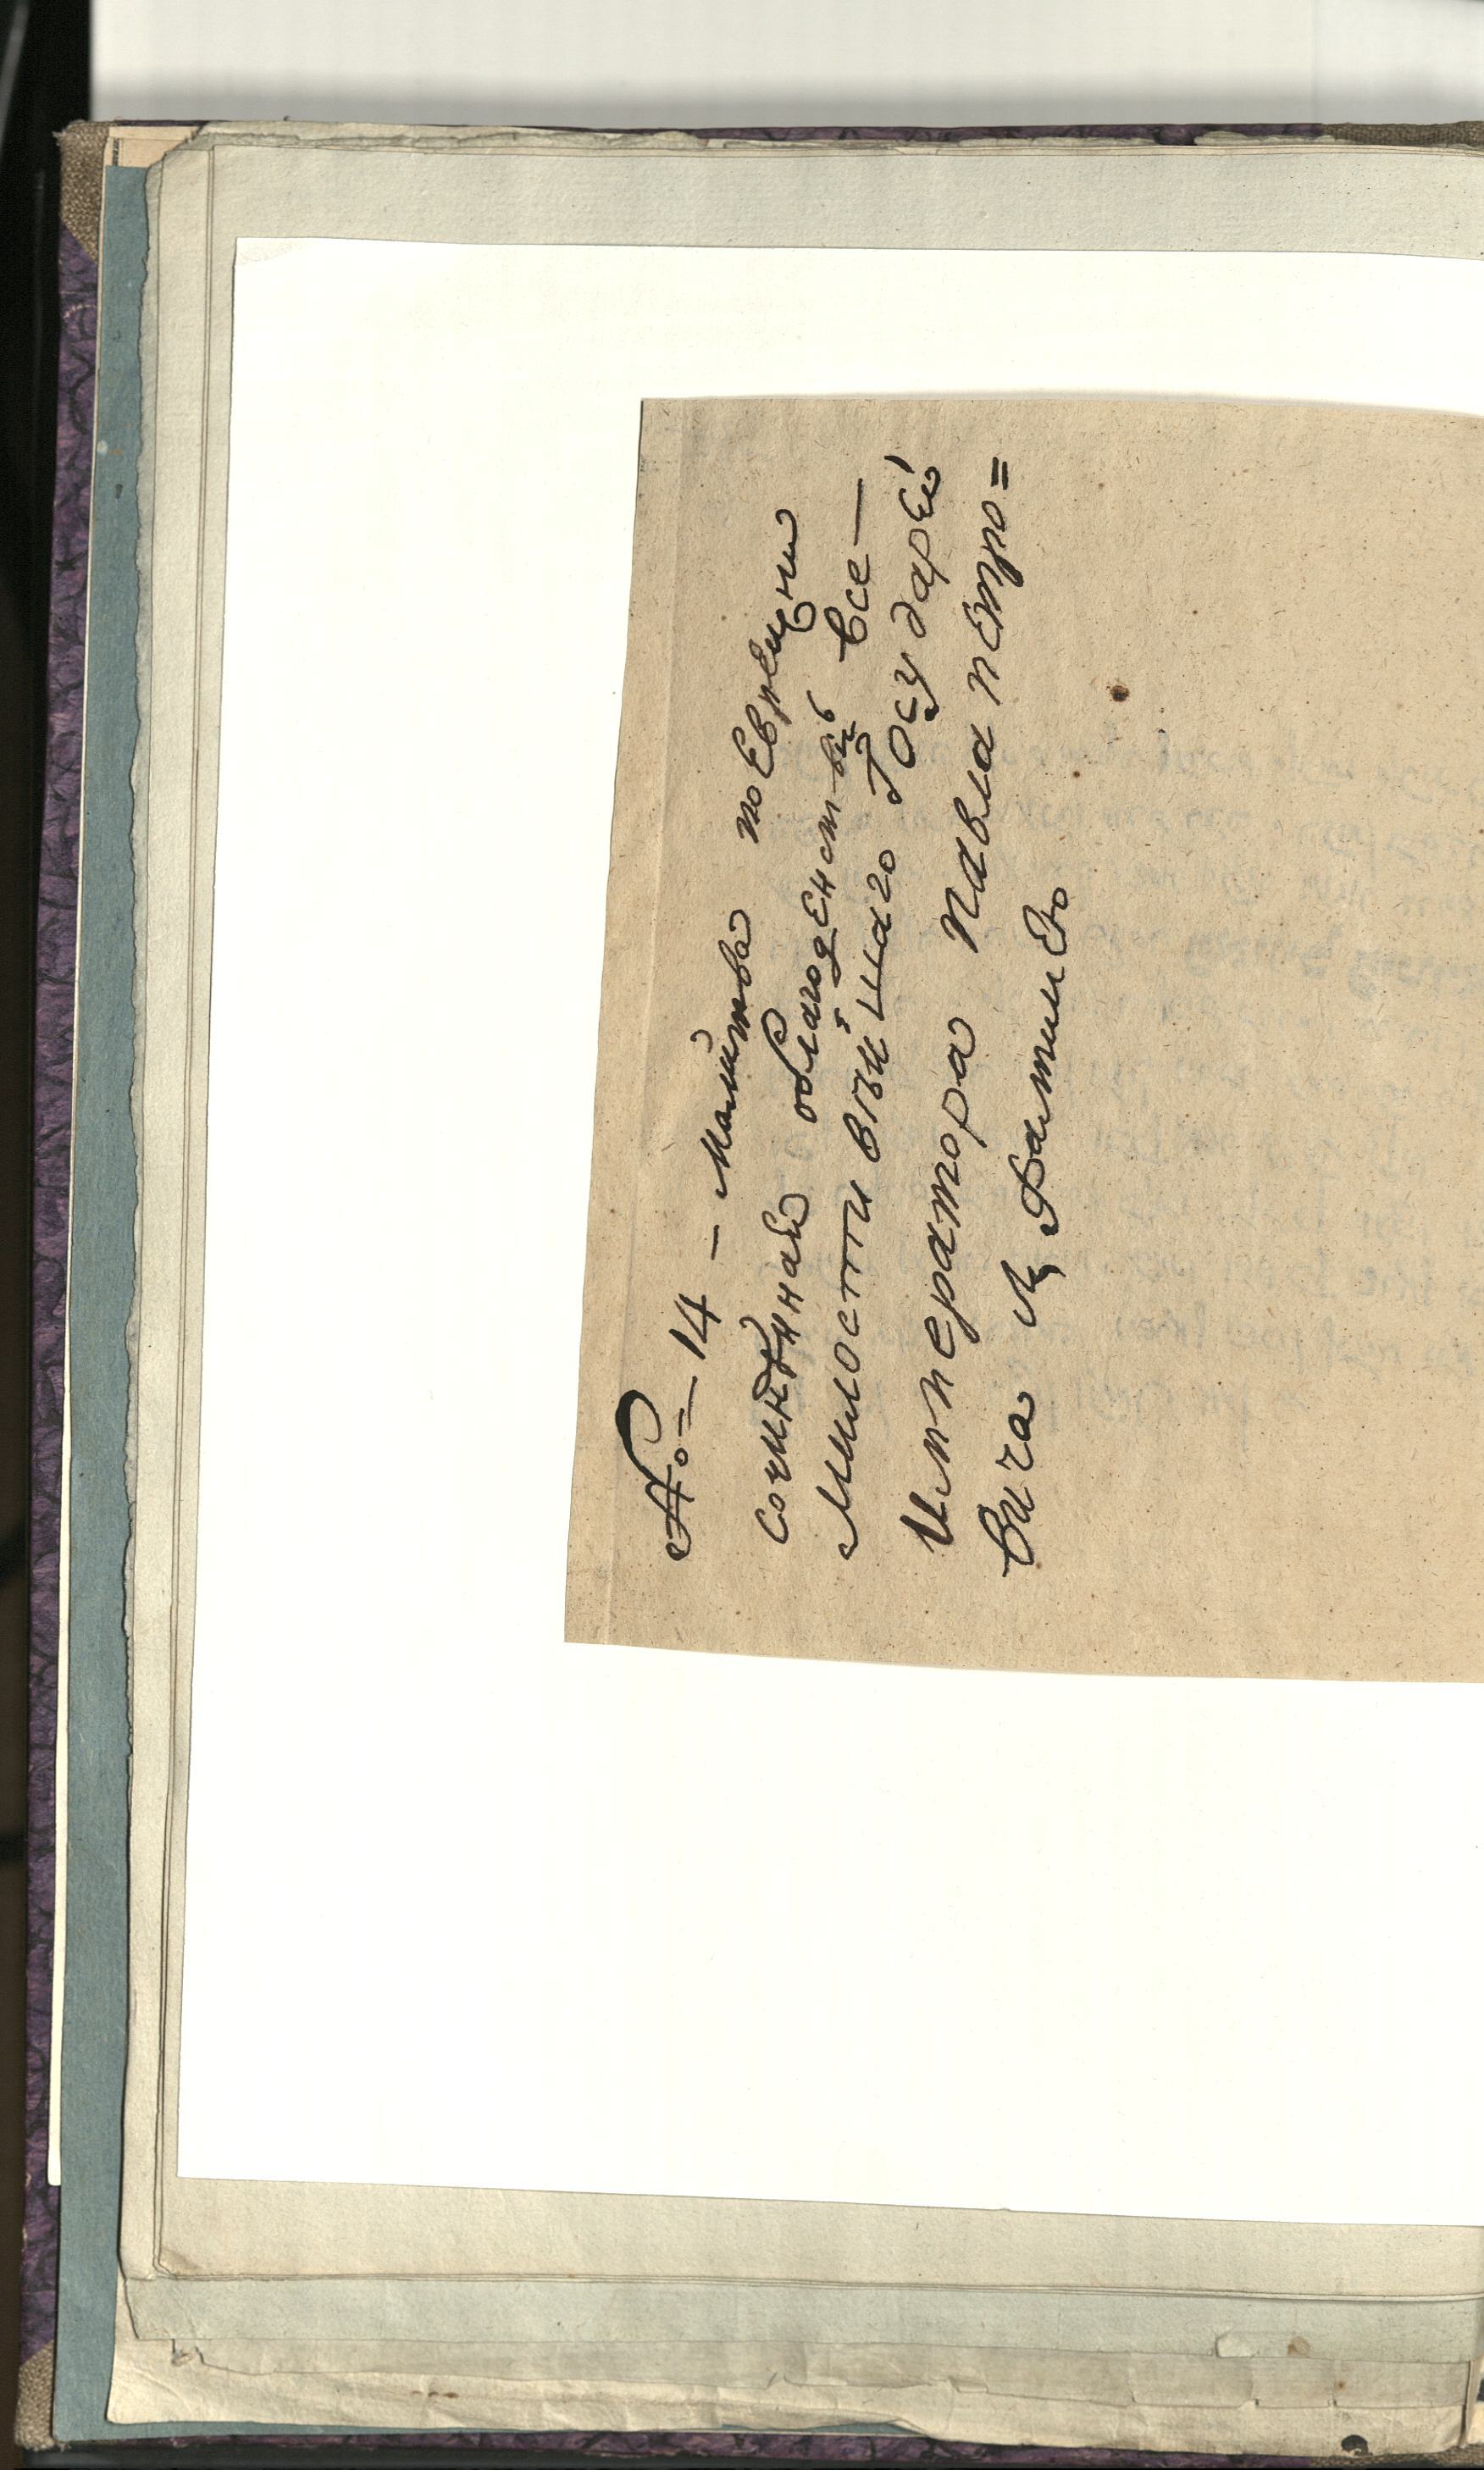 № 14 – Молитва по Еврейски
сочиненная облагоденствии все–
милостивѣйшаго Государя
Императора Павла петро=
вича и фамилію